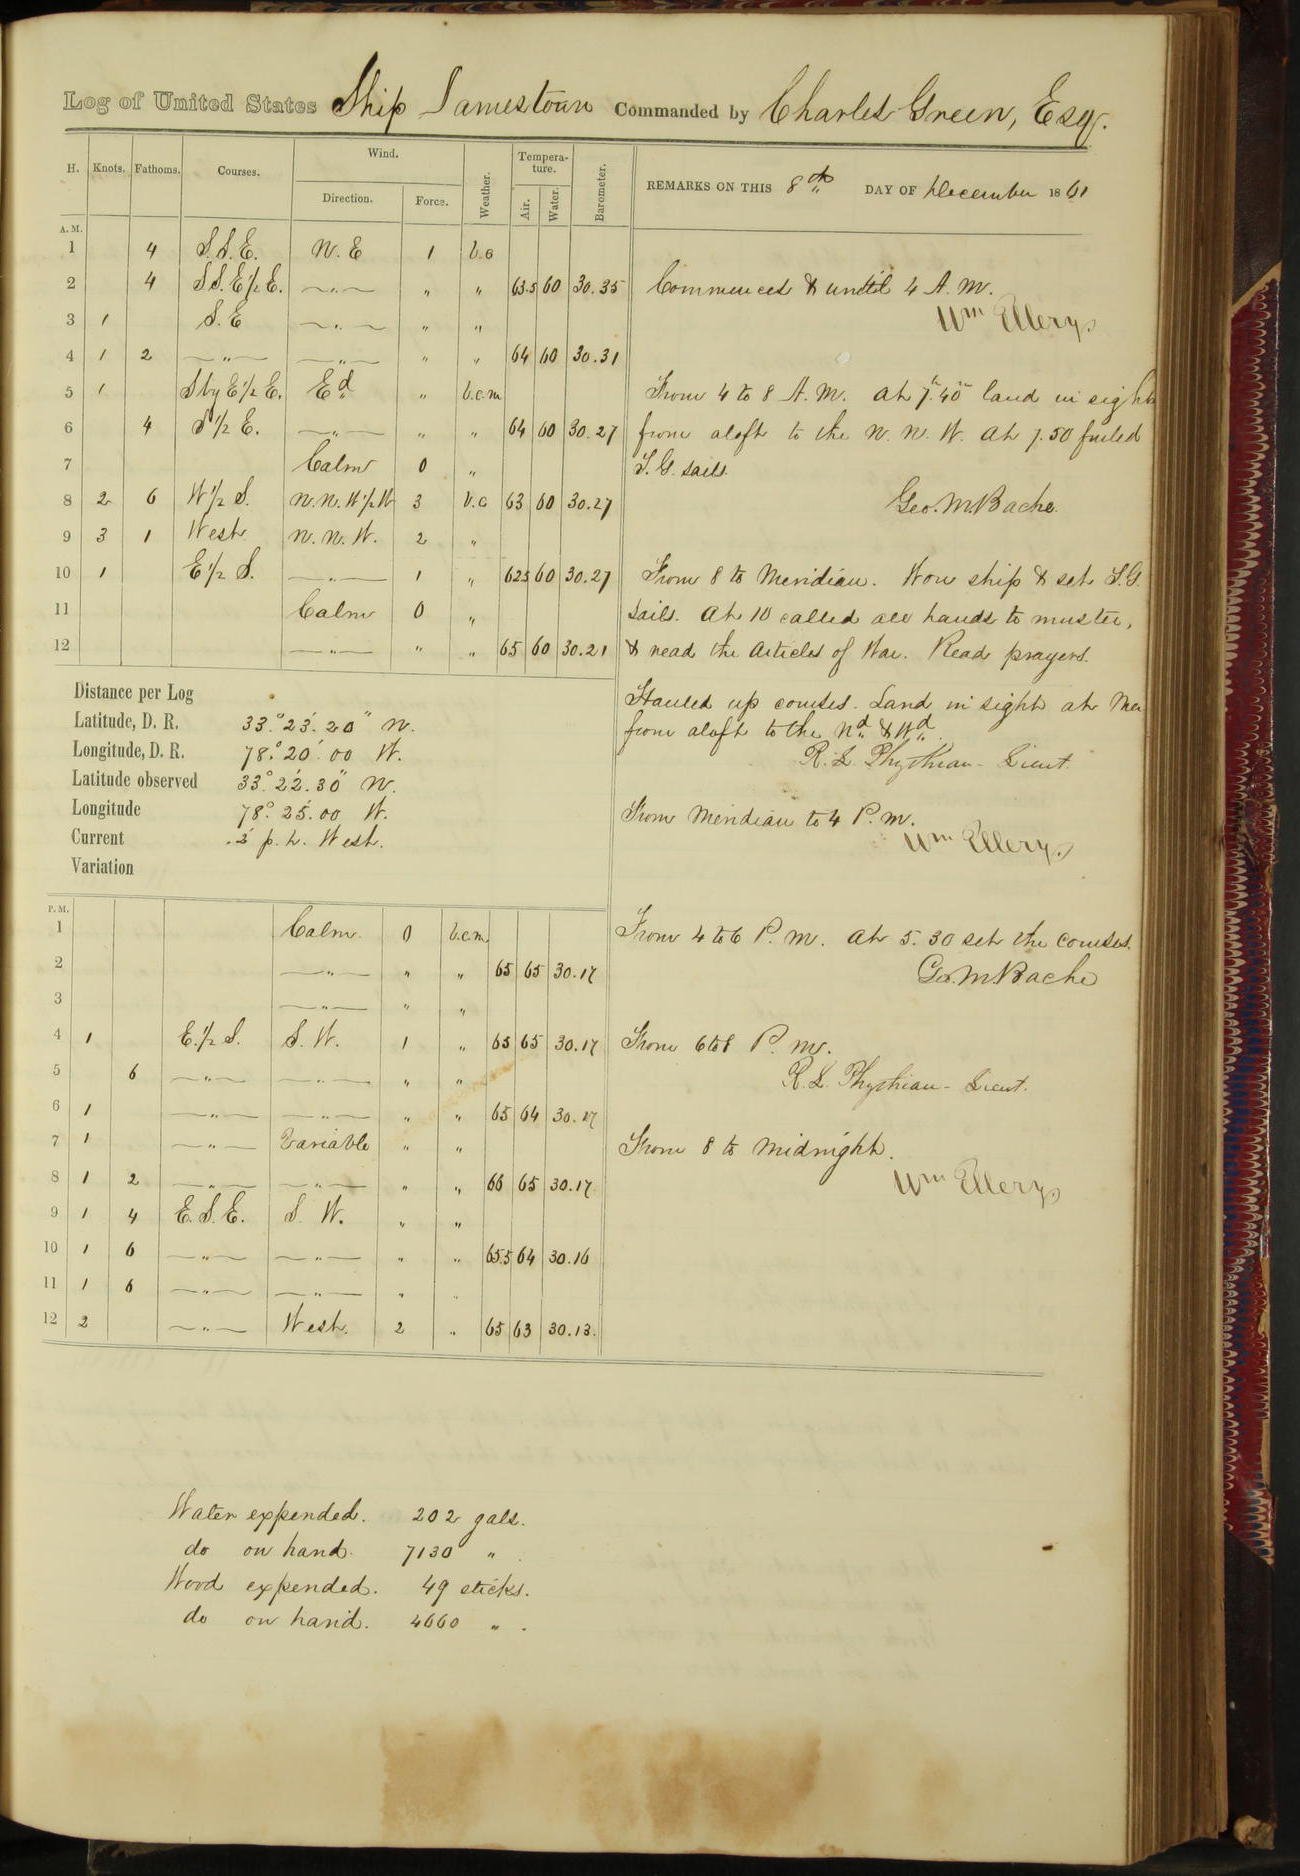 Log of United States Ship Jamestown Commanded by Charles Green, Esqr.
H. Knots. Fathoms. Courses. Wind. Direction. Force. Weather. Tempera-ture. Air. Water. Barometer. REMARKS ON THIS 8th DAY OF December 1861
A.M.
1 4 S.S.E. N.E 1 b.c
2 4 S.S.E½E. —"— " " 63.5 60 30.35 Commences & until 4 A.M.
3 1 S.E —"— " " Wm Ellery
4 1 2 —"— —"— " " 64 60 30.31
5 1 S by E½E. Ed " b.c.m From 4 to 8 A.M. At 7h.40m land in sight
6 4 S½E. —"— " " 64 60 30.27 from aloft to the N.N.W. At 7.50 furled
7 Calm 0 " T.G. sails.
8 2 6 W½S. N.N.W½W 3 b.c 63 60 30.27 Geo. M Bache
9 3 1 West N.N.W. 2 "
10 1 E½S. —"— 1 " 62.5 60 30.27 From 8 to Meridian. Wore ship & set T.G.
11 Calm 0 " sails. At 10 called all hands to muster,
12 —"— " " 65 60 30.21 & read the Articles of War. Read prayers.
Distance per Log . Hauled up courses. Land in sight at Mer
Latitude, D. R. 33.°23.'20" N. from aloft to the Nd & Wd.
Longitude, D. R. 78.°20'.00 W. R. L. Phythian - Lieut.
Latitude observed 33°.22'.30" N.
Longitude 78°.25'.00 W. From Meridian to 4 P.M.
Current .2' p.h. West. Wm Ellery
Variation
P.M.
1 Calm. 0 b.c.m From 4 to 6 P.M. At 5.30 set the courses.
2 —"— " " 65 65 30.17 Geo. M Bache
3 —"— " "
4 1 E.½S. S.W. 1 " 65 65 30.17 From 6 to 8 P.M.
5 6 —"— —"— " " R. L. Phythian - Lieut.
6 1 —"— —"— " " 65 64 30.17
7 1 —"— Variable " " From 8 to Midnight.
8 1 2 —"— —"— " " 66 65 30.17 Wm Ellery
9 1 4 E.S.E. S.W. " "
10 1 6 —"— —"— " " 65.5 64 30.16
11 1 6 —"— —"— " "
12 2 —"— West. 2 " 65 63 30.13.
Water expended. 202 gals.
do on hand. 7130 " .
Wood expended. 49 sticks.
do on hand. 4660 " .